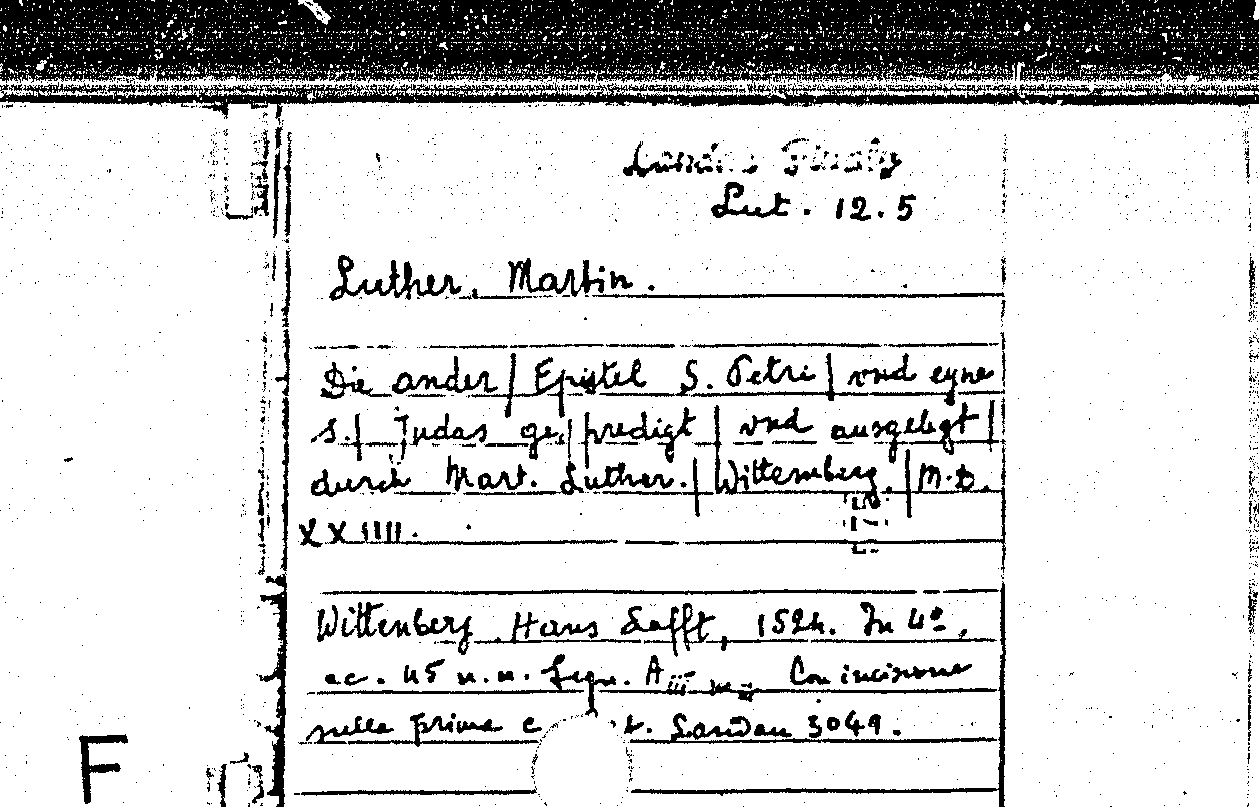 Landau Finaly
Lut. 12.5
Luther, Martin.
Die ander | Epistel S. Petri | vnd eyne
S. | Judas ge | predigt | vnd ausgelegt |
durch Mart. Luther. | Wittemberg. | M.D.
XXIIII.
Wittenberg, Hans Lufft, 1524. In 4º,
cc. 45 n.n. Segn. A iii
Con incisione
sulla prima c t. Landau 3049.
F